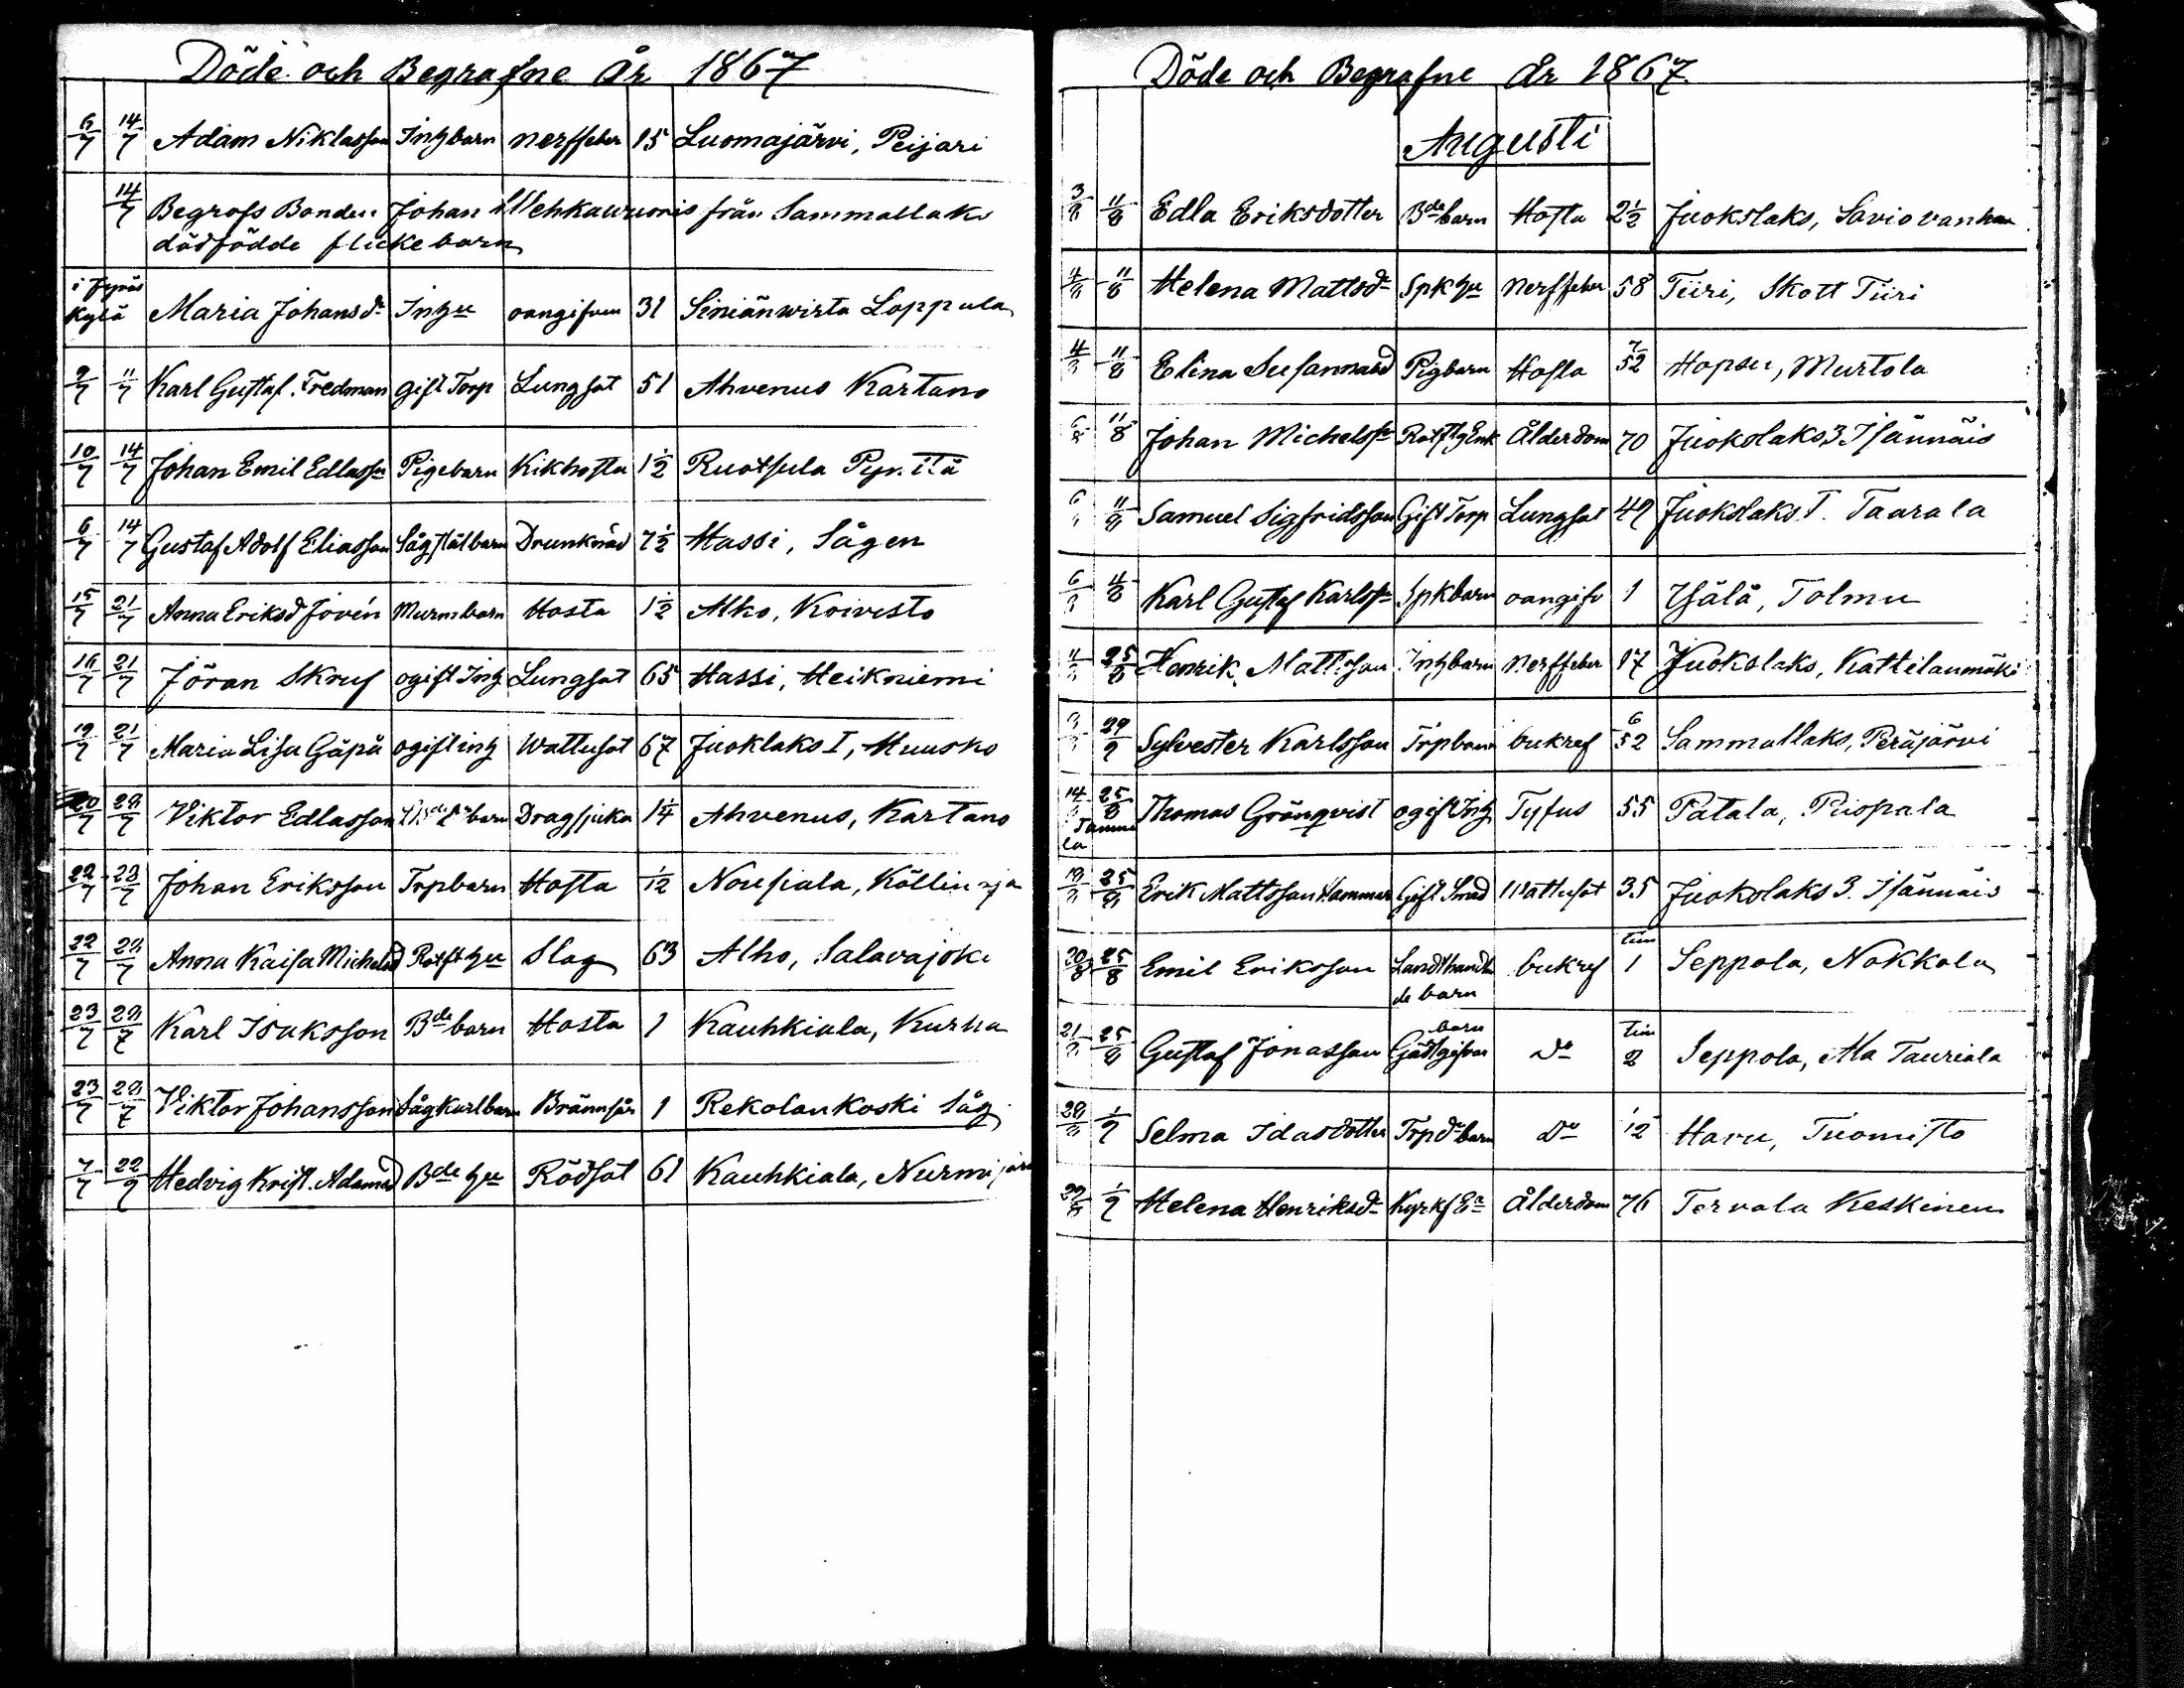 Döde och Begrafne År 1867
6/7 14/7 Adam Niklasson Inhbarn nerffeber 15 Luomajärvi, Peijari
14/7 Begrofs Bonden Johan Wehkawuoris från Sammallaks
dödfödde flickebarn
i Jyväs
Kylä Maria Johansdr Inhhu oangifven 31 Siniänwirta Loppula
9/7 11/7 Karl Gustaf Fredman gift Torp Lungsot 51 Ahvenus Kartano
10/7 14/7 Johan Emil Edlasson Pigebarn Kikhosta 1½
6/7 14/7 Gustaf Adolf Eliasson Drunknad 7½ Hassi, Sågen
15/7 21/7 Anna Eriksd Jovén Murmbarn Hosta 1½ Alho, Koivisto
16/7 21/7 Jöran Skruf ogift Inh Lungsot 65 Hassi, Heikniemi
19/7 21/7 Maria Lisa Gäpä ogift inh Wattusot 67 Juoklaks I, Muusko
20/7 28/7 Viktor Edlasson barn Dragsjuka 1¼ Ahvenus, Kartano
22/7 28/7 Johan Eriksson Trpbarn Hosta 1/12 Nousiala,
22/7 28/7 Anna Kaisa Michelsd Rotfthu Slag 63 Alho, Salavajoki
23/7 28/7 Karl Isaksson Bde barn Hosta 1 Kauhkiala, Kurha
23/7 28/7 Viktor Johansson Sågkarlbarn Brännsår 1 Rekolankoski Såg
7/7 22/9 Hedvig Krist. Adamsd Bde hu Rödsot 61 Kauhkiala, Nurmijärvi
Döde och Begrafne År 1867
Augusti
3/8 11/8 Edla Eriksdotter Bde barn Hosta 2½ Juokslaks, Saviovanhan
4/8 11/8 Helena Mattsdr Spkhu Nerffeber 58 Tiiri, Skott Tiiri
4/8 11/8 Elina Susannasd Pigbarn Hosta 7/52 Hopsu, Murtola
6/8 11/8 Johan Michelsson Rotfthgenk Ålderdom 70 Juokslaks 3 Isännäis
6 11/8 Samuel Sigfridsson Gift Torp Lungsot 49 Juokslaks I. Taarala
6/8 4/8 Karl Gustaf Karlsson Spkbarn oangifv 1 Tolmu
4 25/8 Henrik Mattsson Inhbarn Nerffeber 17 Juokslaks, Kattilanmäki
29/9 Sylvester Karlsson Torpbarn bukref 6/52 Sammallaks, Peräjärvi
14 25/8 Thomas Grönqvist ogift Inh Tyfus 55 Patala, Piispala
Tamme
la
19/8 25/8 Erik Mattsson Hammar Gift Smed Wattusot 35 Juokslaks 3. Isännäis
20/8 25/8 Emil Eriksson Landthandl bukref tim 1 Seppola, Nokkola
de barn
21/8 25/8 Gustaf Jonasson Gästgifvar barn Do tim 2 Seppola, Ala Tauriala
28/8 1/9 Selma Idasdotter Trpdr barn Do 1/2 Havu, Tuomisto
29/8 1/9 Helena Henriksdr KyrkfEa Ålderdom 76 Tervala Keskinen